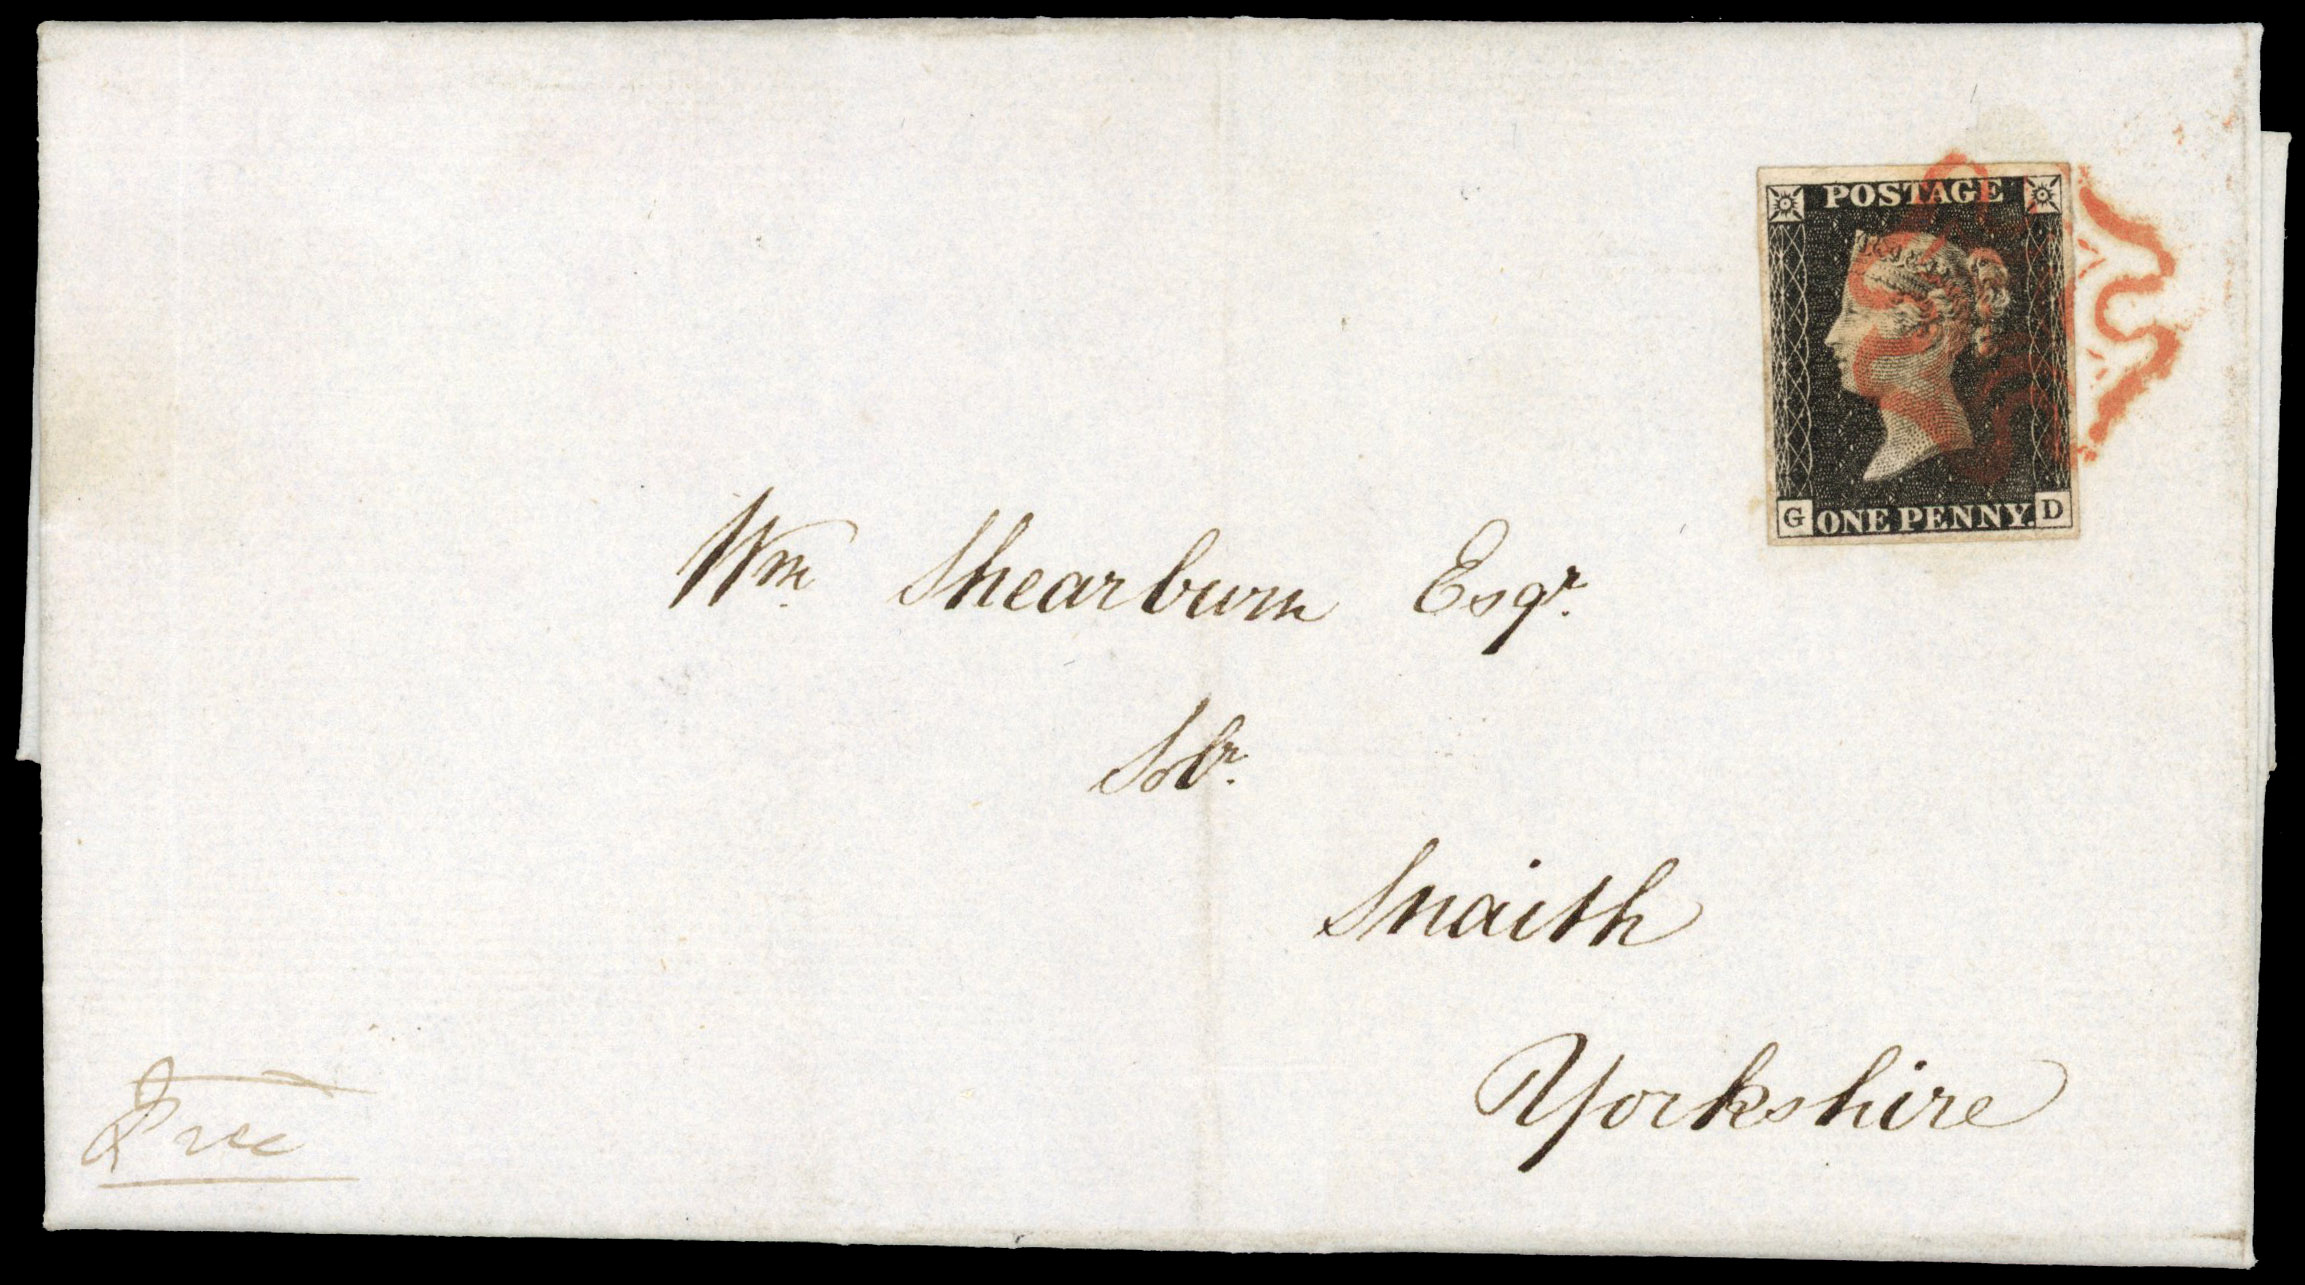 POSTAGE
G ONE PENNY. D
Wm. Shearburn Esqr.
Solr.
Snaith
Yorkshire
Free